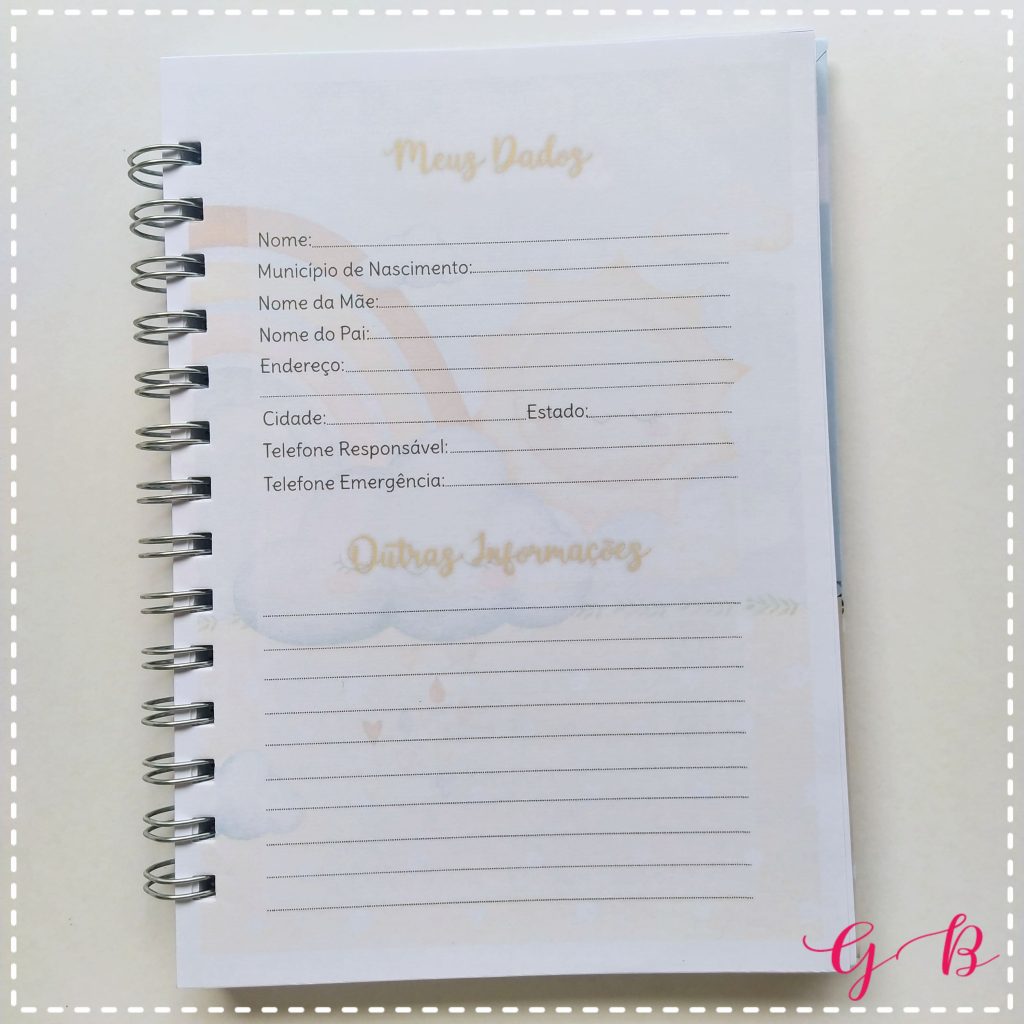 Meus Dados
Nome:
Município de Nascimento:
Nome da Mãe:
Nome do Pai:
Endereço:
Cidade: Estado:
Telefone Responsável:
Telefone Emergência:
Outras Informações
G B